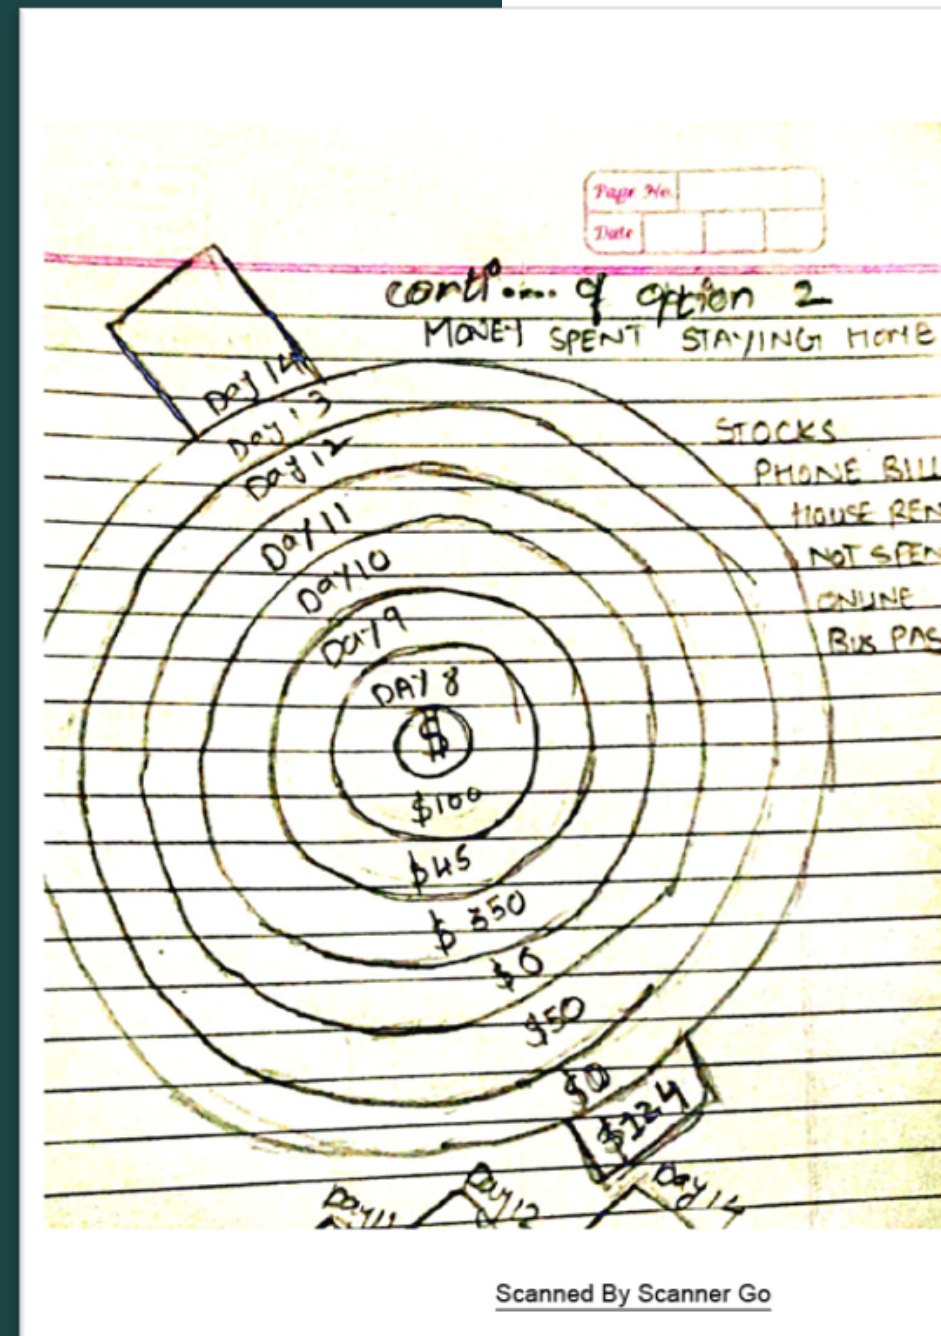 Page No.
Date
conti.... of option 2
MONEY SPENT STAYING HOME
STOCKS
PHONE BILL
HOUSE REN
NOT SPEN
ONLINE
BUS PAS
Day 14
Day 13
Day 12
Day 11
Day 10
Day 9
DAY 8
$
$100
$45
$350
$0
$50
$0
$124
Day 11
Day 12
Day 14
Scanned By Scanner Go